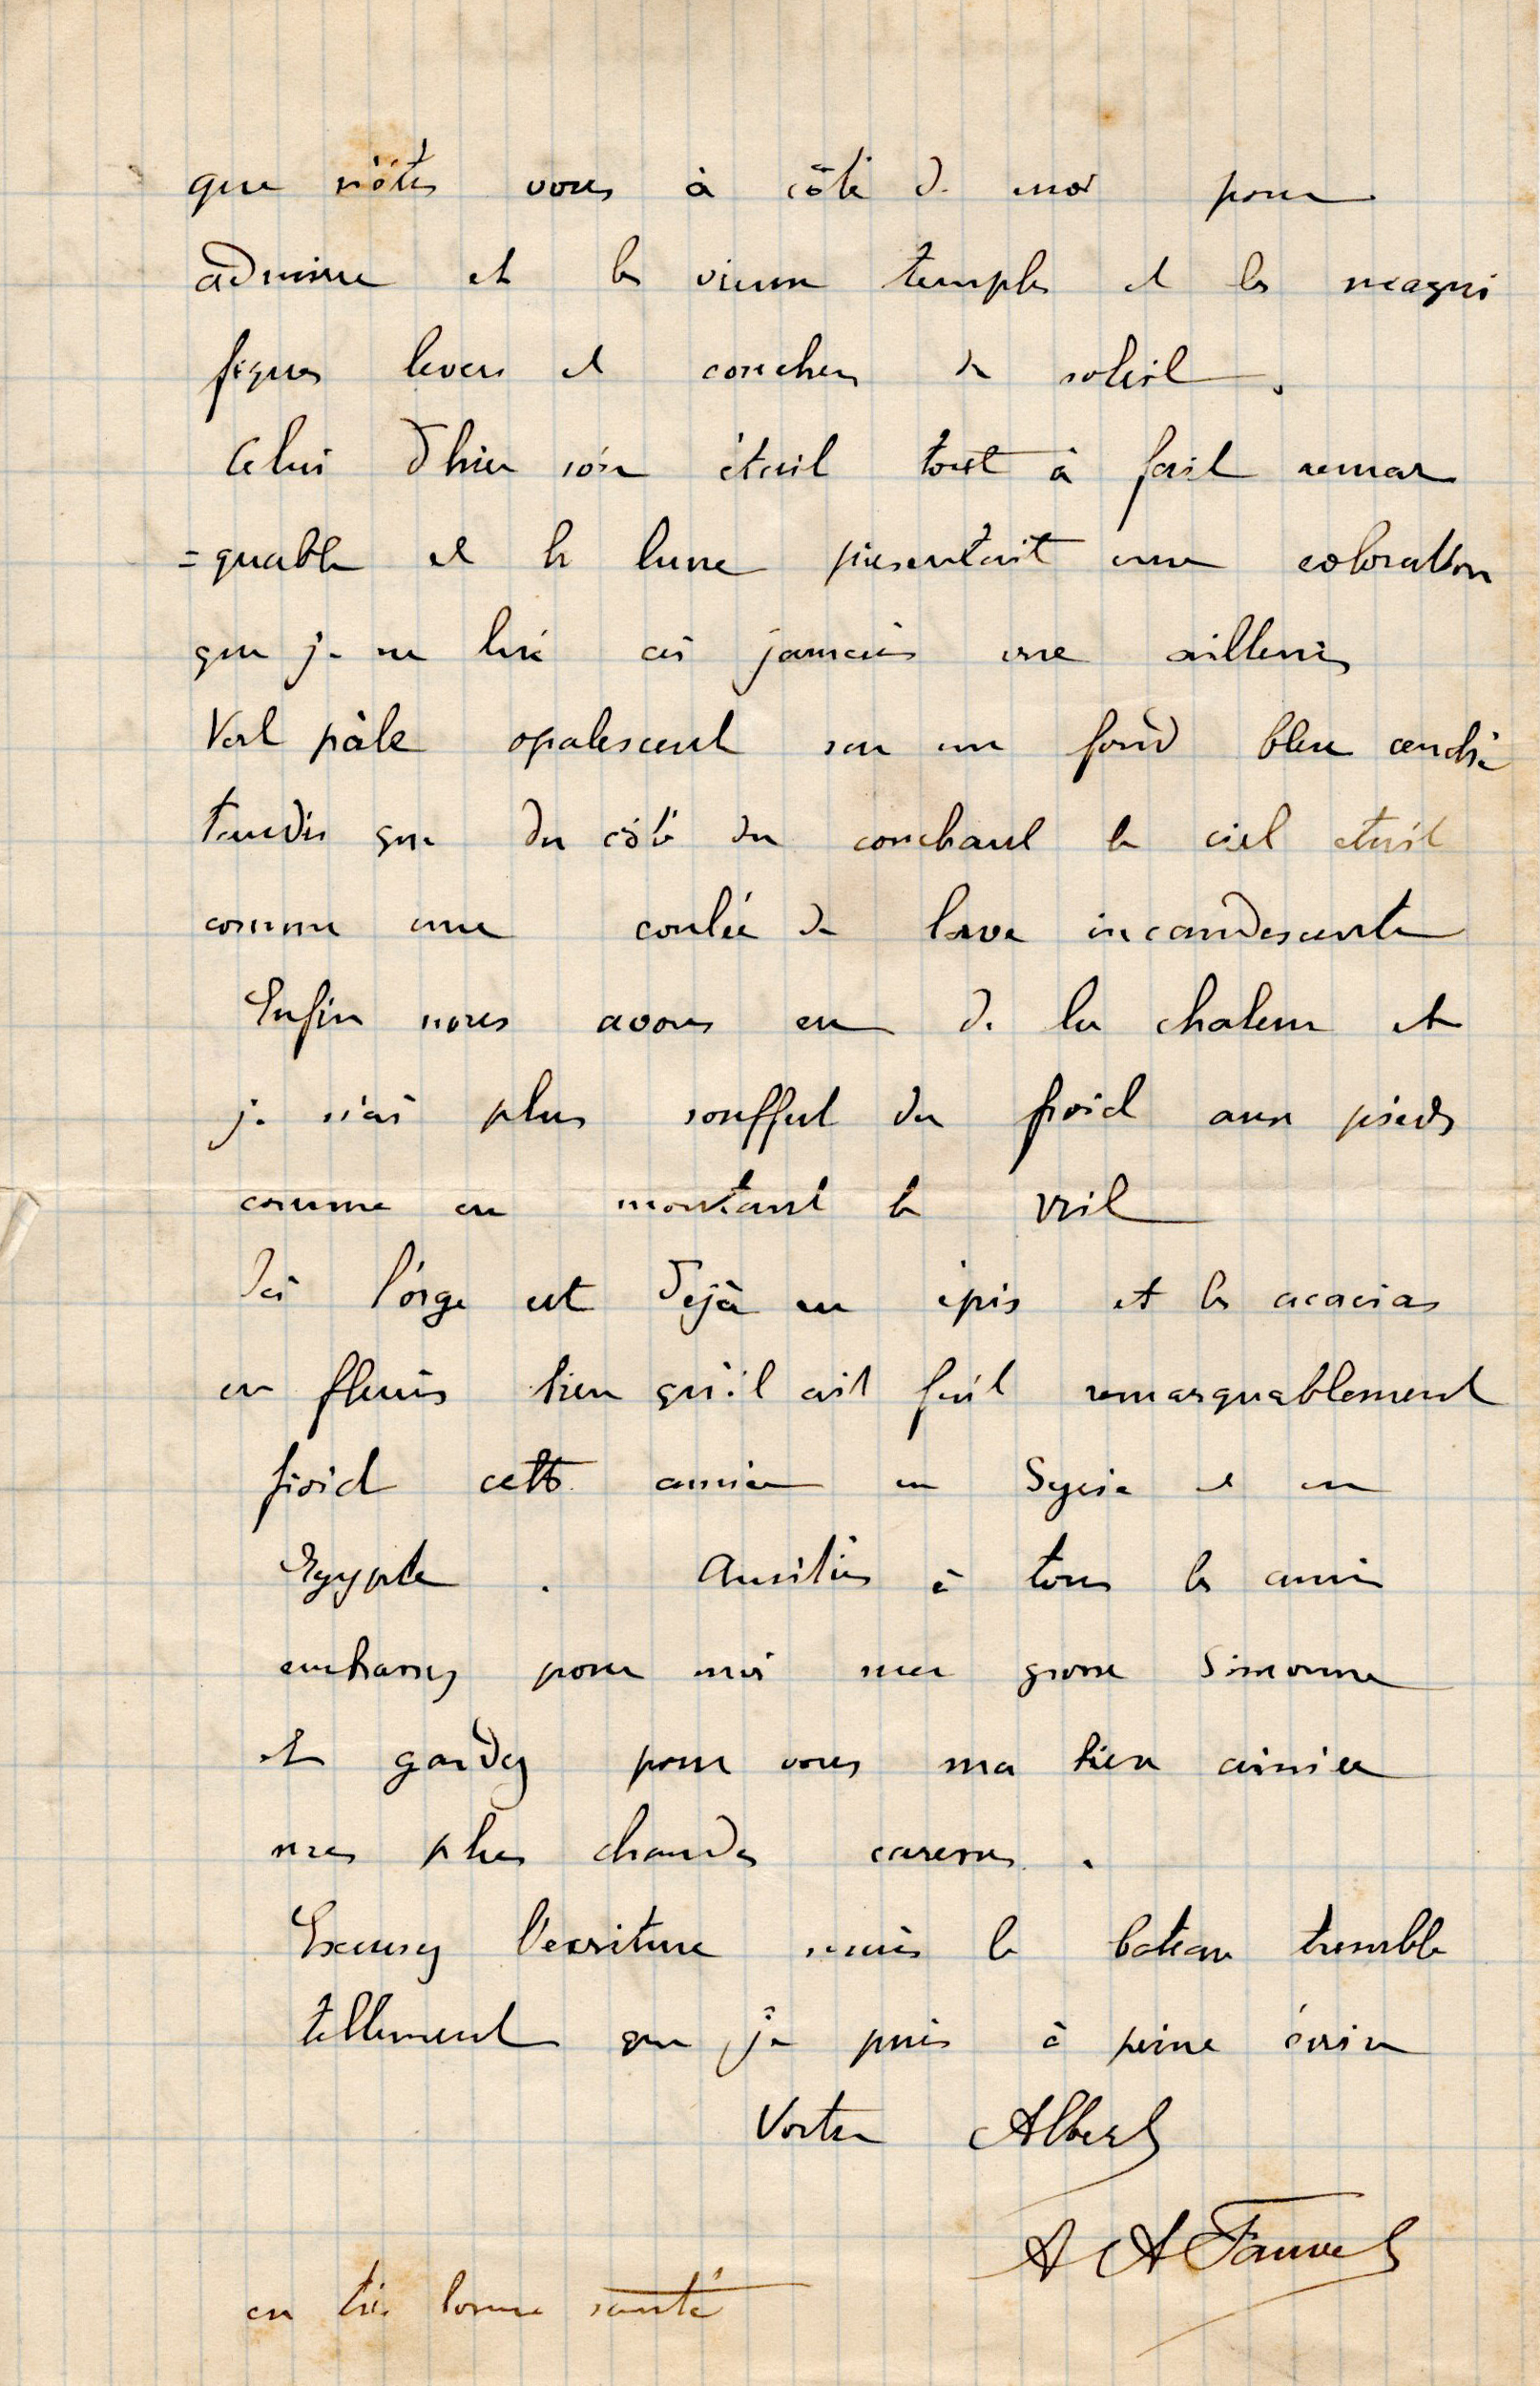 que n'êtes vous à côté de moi pour
admirer et les vieux temples et les magni
fiques levers et couchers de soleil.
Celui d'hier soir était tout à fait remar
=quable et la lune présentait une coloration
que je ne lui ai jamais vue ailleurs
Vert pâle opalescent sur un fond bleu cendré
tandis que du côté du couchant le ciel etait
comme une coulée de lave incandescente
Enfin nous avons eu de la chaleur et
je n'ai plus souffert du froid aux pieds
comme en montant le Nil
Ici l'orge est déjà en épis et les acacias
en fleurs bien qu'il ait fait remarquablement
froid cette année en Syrie et en
Egypte. Amitiés à tous les amis
embrassez pour moi ma grosse Simonne
et gardez pour vous ma bien aimée
mes plus chaudes caresses.
Excusez l'ecriture mais le bateau tremble
tellement que je puis à peine écrire
Votre Albert
A A Fauvel
en très bonne santé